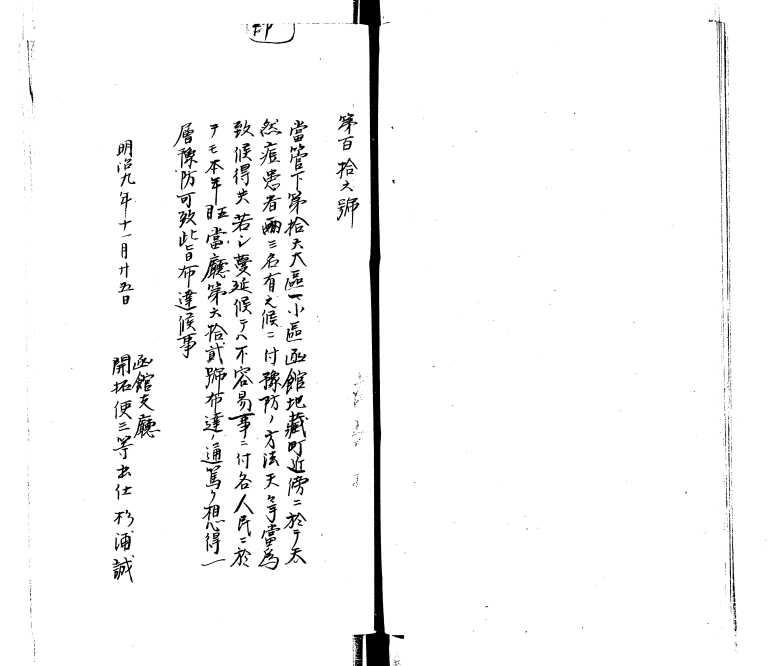 第百拾六號
當管下第拾六大區一小區函館地藏町近傍ニ於テ天
然痘患者兩三名有之候ニ付豫防ノ方法夫々手當為
致候得共若シ蔓延候テハ不容易事ニ付各人民ニ於
テモ本年五月當廳第六拾貳號布達ノ通篤ク相心得一
層豫防可致此旨布達候事
明治九年十一月廿五日
函館支廳
開拓使三等出仕杉浦誠